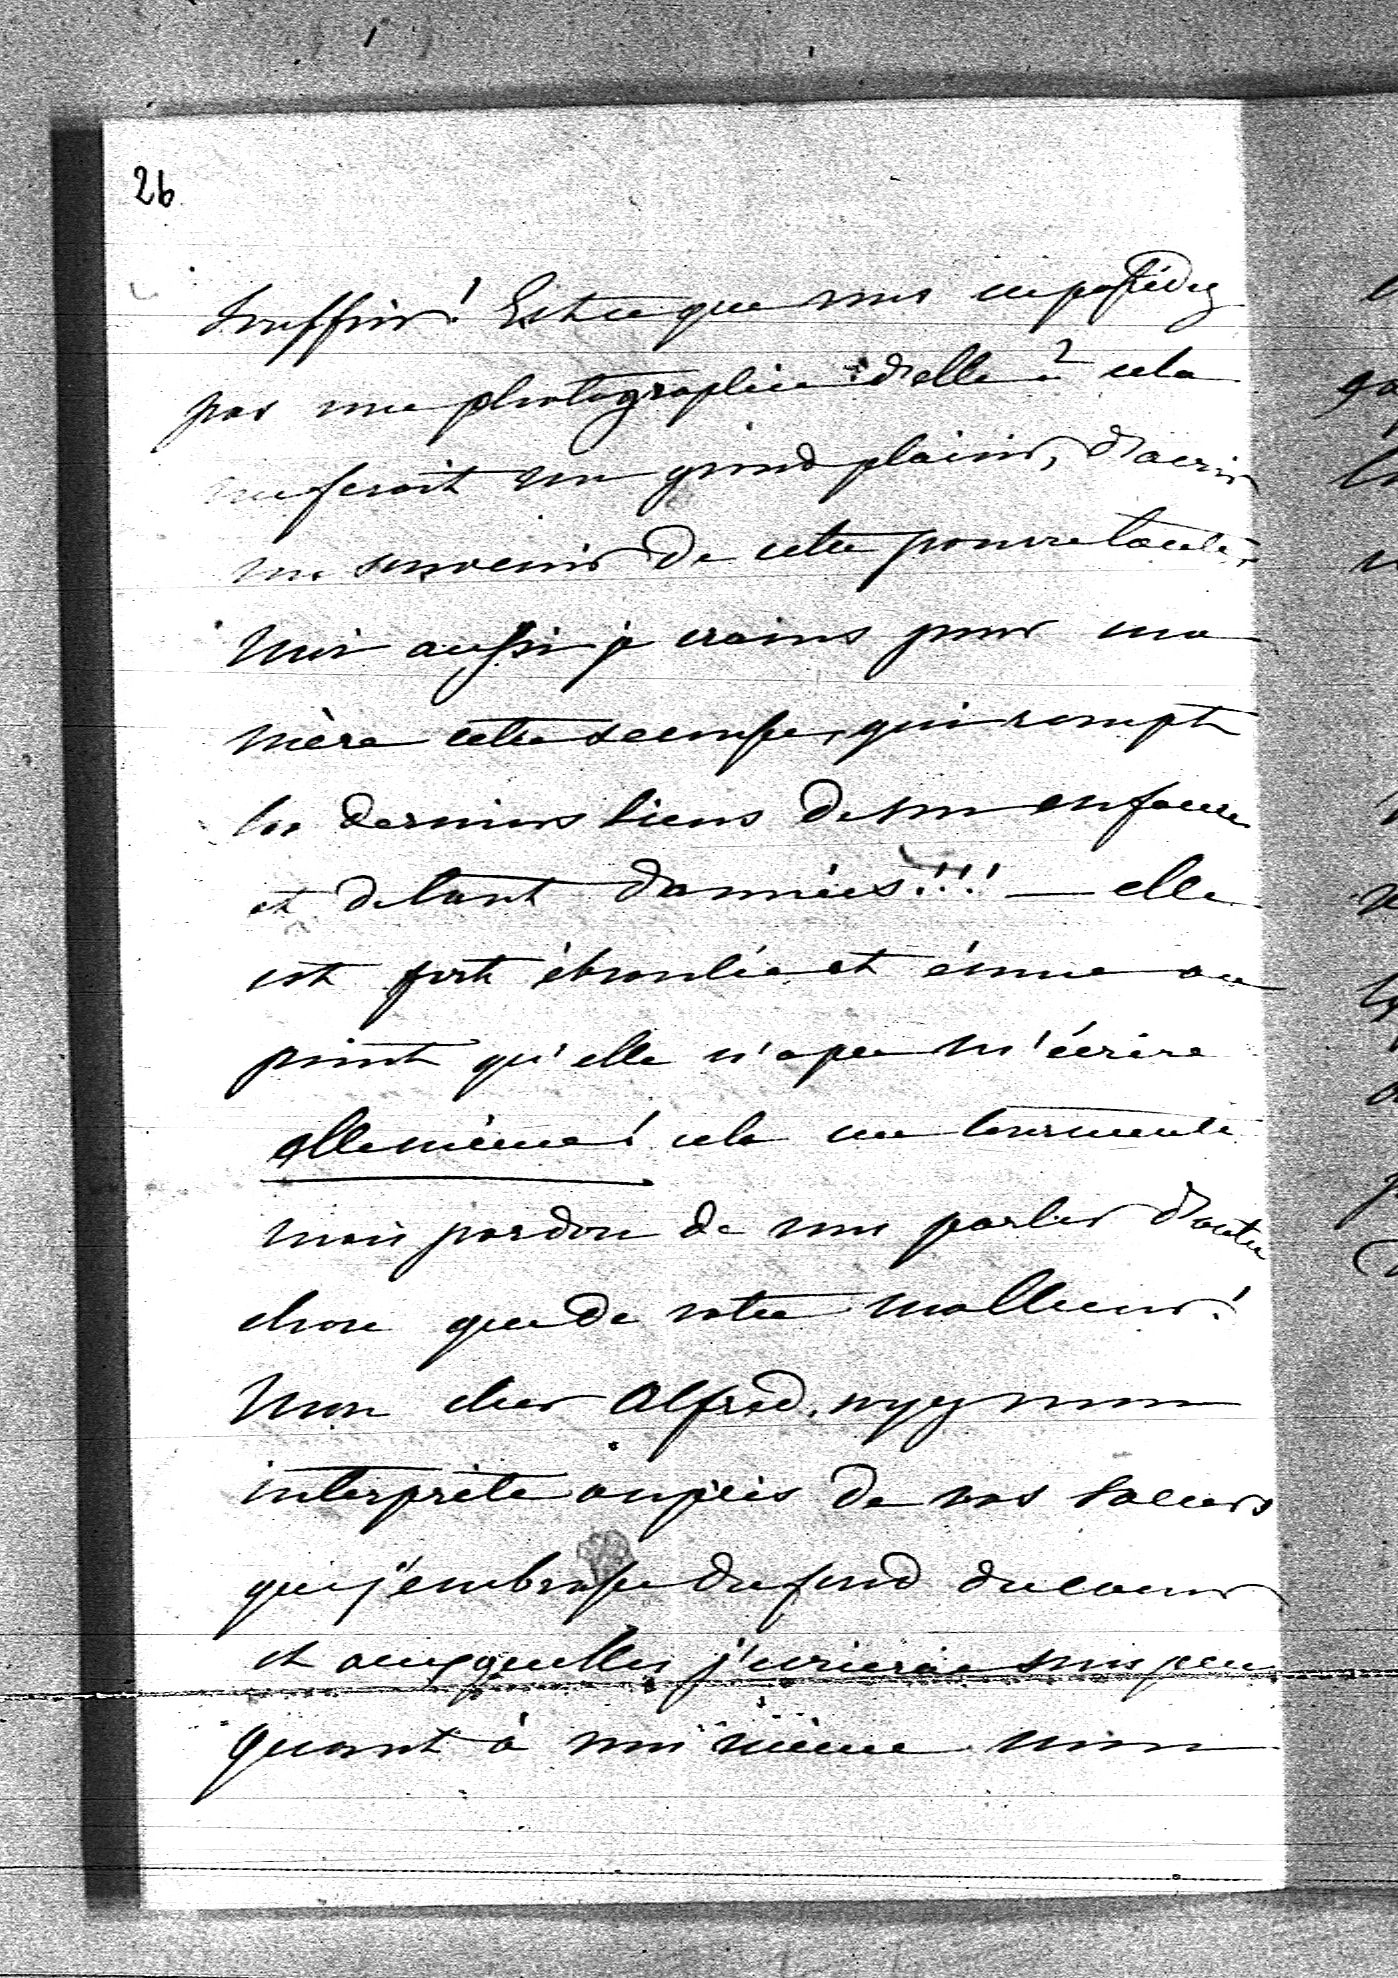 26
souffrir! Est ce que vous ne possédez
pas une photographie d'elle? cela
me feroit un grand plaisir, d'avoir
un souvenir de cette pauvre tante.
Moi aussi je crains pour ma
mère cette secousse, qui rompt
les derniers liens de son enfance
et de tant d'années!!! — elle
est fort ébranlée et émue au
point qu'elle n'a pu m'écrire
elle même! cela me tourmente
mais pardon de vous parler d'autre
chose que de votre malheur!
Mon cher Alfred, soyez mon
interprète auprès de vos soeurs
que j'embrasse du fond du coeur
et auxquelles j'écrirai sous peu
quant à moi même mon